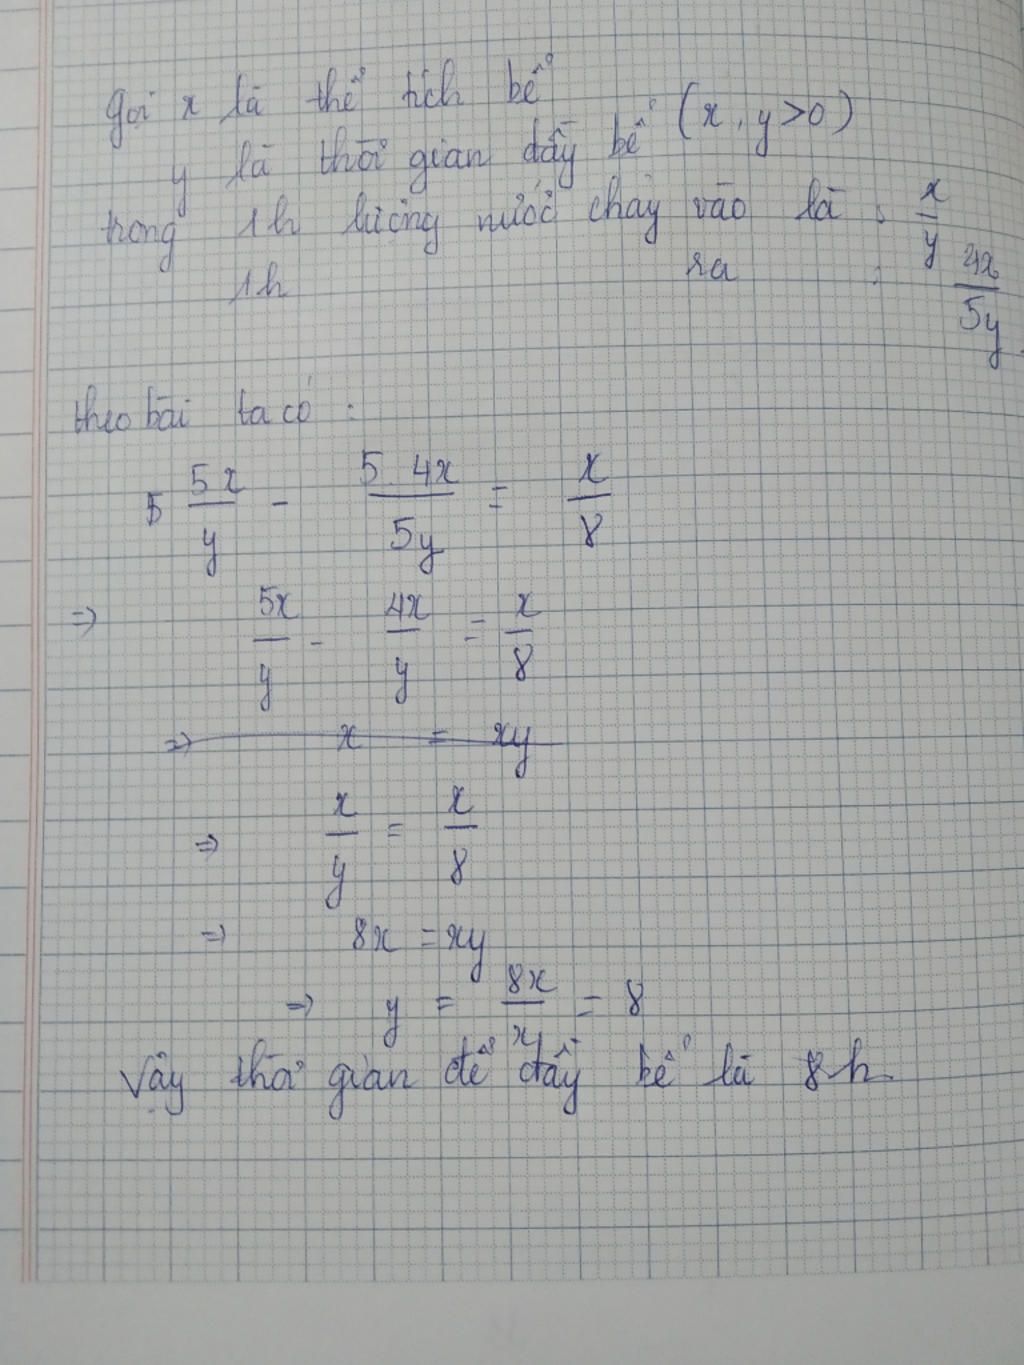 Gọi x là thể tích bể
y là thời gian đầy bể (x, y>0)
trong 1h lượng nước chảy vào là : x/y
1h ra : 4x/5y
theo bài ta có :
5x/y - 5.4x/5y = x/8
=> 5x/y - 4x/y = x/8
=> x = xy
=> x/y = x/8
=> 8x = xy
=> y = 8x/x = 8
Vậy thời gian để đầy bể là 8h